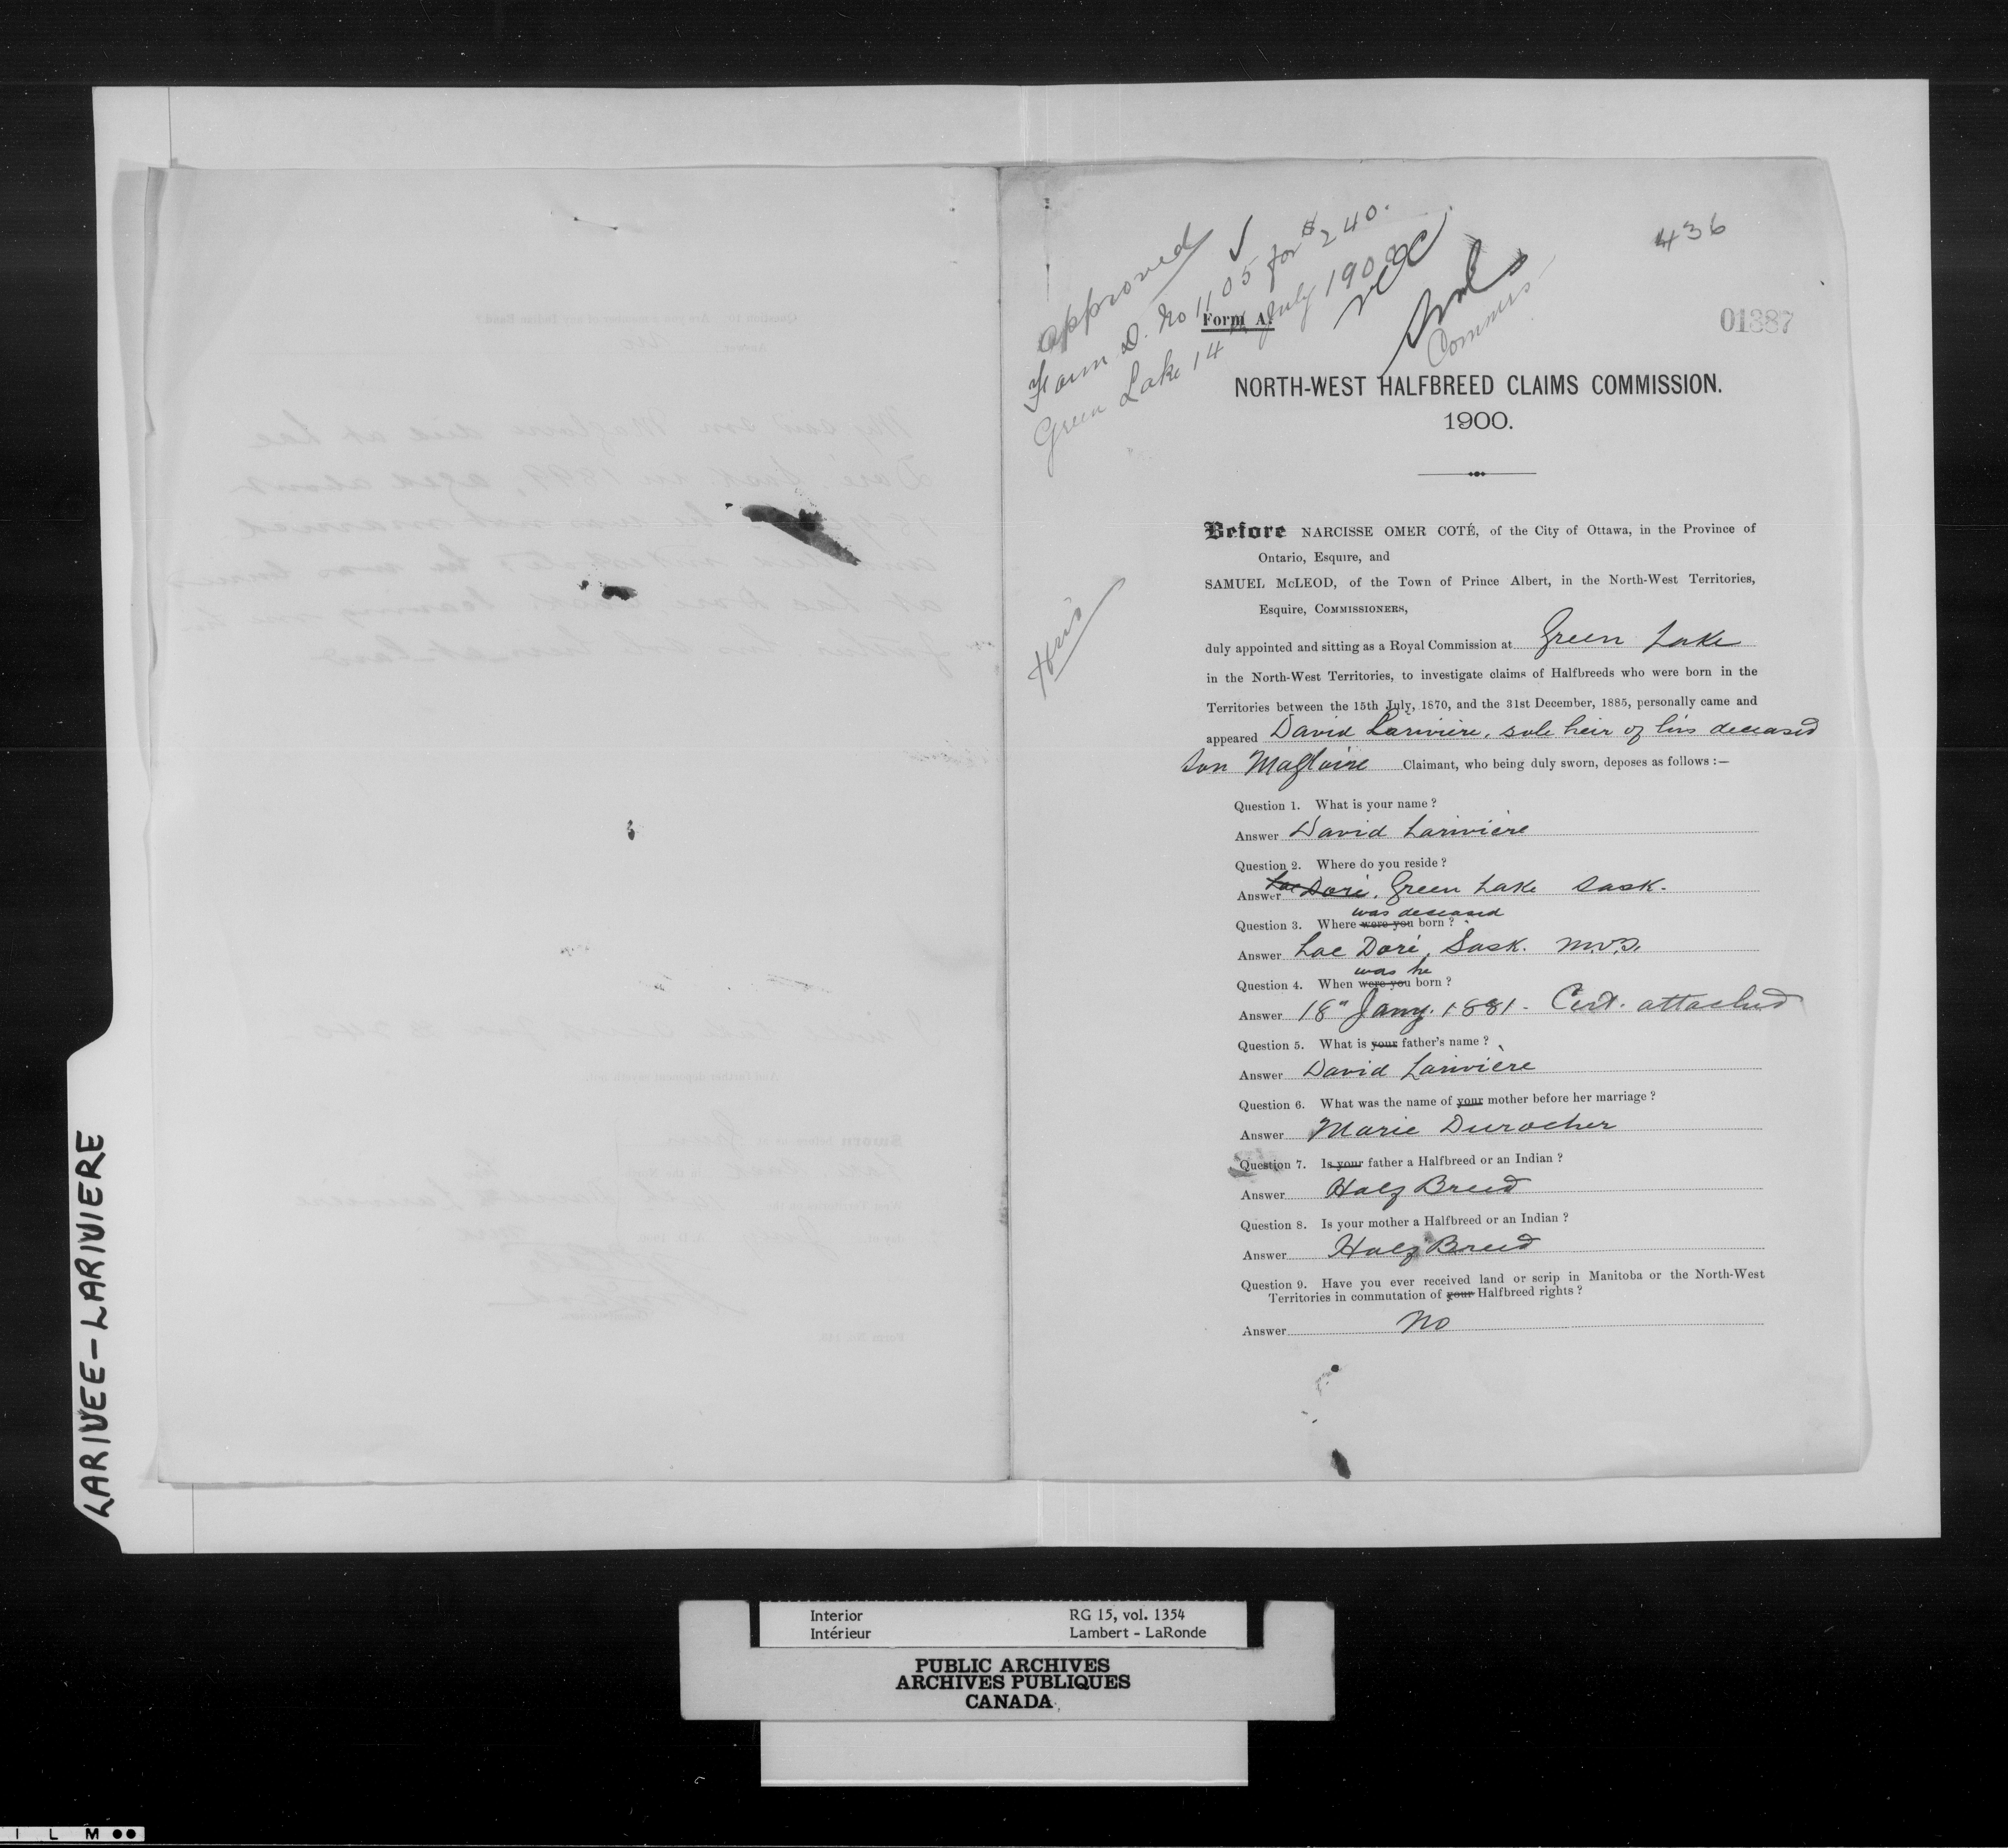 436
01387
approved ✓
Form D. No 1105 for $240.
Green Lake 14th July 1900
NOC
Commrs
Form A.
NORTH-WEST HALFBREED CLAIMS COMMISSION.
1900.
Heir
Before NARCISSE OMER COTÉ, of the City of Ottawa, in the Province of
Ontario, Esquire, and
SAMUEL McLEOD, of the Town of Prince Albert, in the North-West Territories,
Esquire, COMMISSIONERS,
duly appointed and sitting as a Royal Commission at Green Lake
in the North-West Territories, to investigate claims of Halfbreeds who were born in the
Territories between the 15th July, 1870, and the 31st December, 1885, personally came and
appeared David Larivière, sole heir of his deceased
son Magloire Claimant, who being duly sworn, deposes as follows :—
Question 1. What is your name ?
Answer David Larivière
Question 2. Where do you reside ?
Answer Lac Doré, Green Lake Sask.
was deceased
Question 3. Where were you born ?
Answer Lac Doré, Sask. N.W.T.
was he
Question 4. When were you born ?
Answer 18" Jany. 1881 - Cert. attached
Question 5. What is your father's name ?
Answer David Larivière
Question 6. What was the name of your mother before her marriage ?
Answer Marie Durocher
Question 7. Is your father a Halfbreed or an Indian ?
Answer Half Breed
Question 8. Is your mother a Halfbreed or an Indian ?
Answer Half Breed
Question 9. Have you ever received land or scrip in Manitoba or the North-West
Territories in commutation of your Halfbreed rights ?
Answer No
LARIVEE-LARIVIERE
Interior RG 15, vol. 1354
Intérieur Lambert - LaRonde
PUBLIC ARCHIVES
ARCHIVES PUBLIQUES
CANADA
I L M